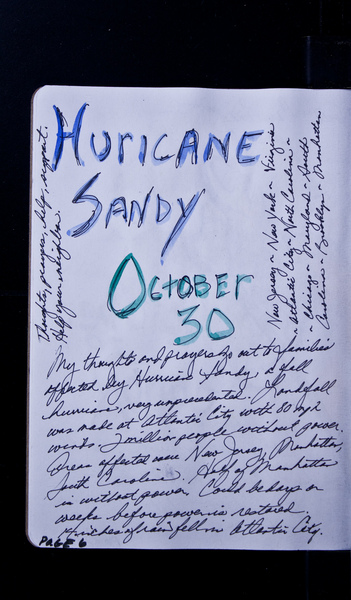 HURICANE
SANDY
OCTOBER
30
Thoughts, prayers, help, support.
Help your neighbor
New Jersey ~ New York ~ Virginia
Atlantic City ~ North Carolina ~
Chicago ~ Maryland ~ South
Carolina ~ Brooklyn ~ Manhattan
My thoughts and prayers go out to families
affected by Hurricane Sandy, a fall
hurricane, very unprecedented. Landfall
was made at Atlantic City with 80 mph
winds. 2 million people without power.
Areas affected were New Jersey, Manhattan,
South Carolina. Half of Manhattan
is without power. Could be days or
weeks before power is restored.
inches of rain fell in Atlantic City.
PAGE 6